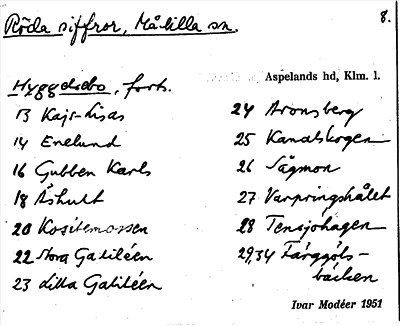 Röda siffror, Målilla sn.
8.
Hyggdebo, forts.
Aspelands hd, Klm. l.
13 Kajs-Lisas
14 Enelund
16 Gubben Karls
18 Åshult
20 Kositemossen
22 Stora Galiléen
23 Lilla Galiléen
24 Aronsberg
25 Kanalskogen
26 Sågmon
27 Varpringshålet
28 Tensjöhagen
29,34 Färggöls-
bäcken
Ivar Modéer 1951